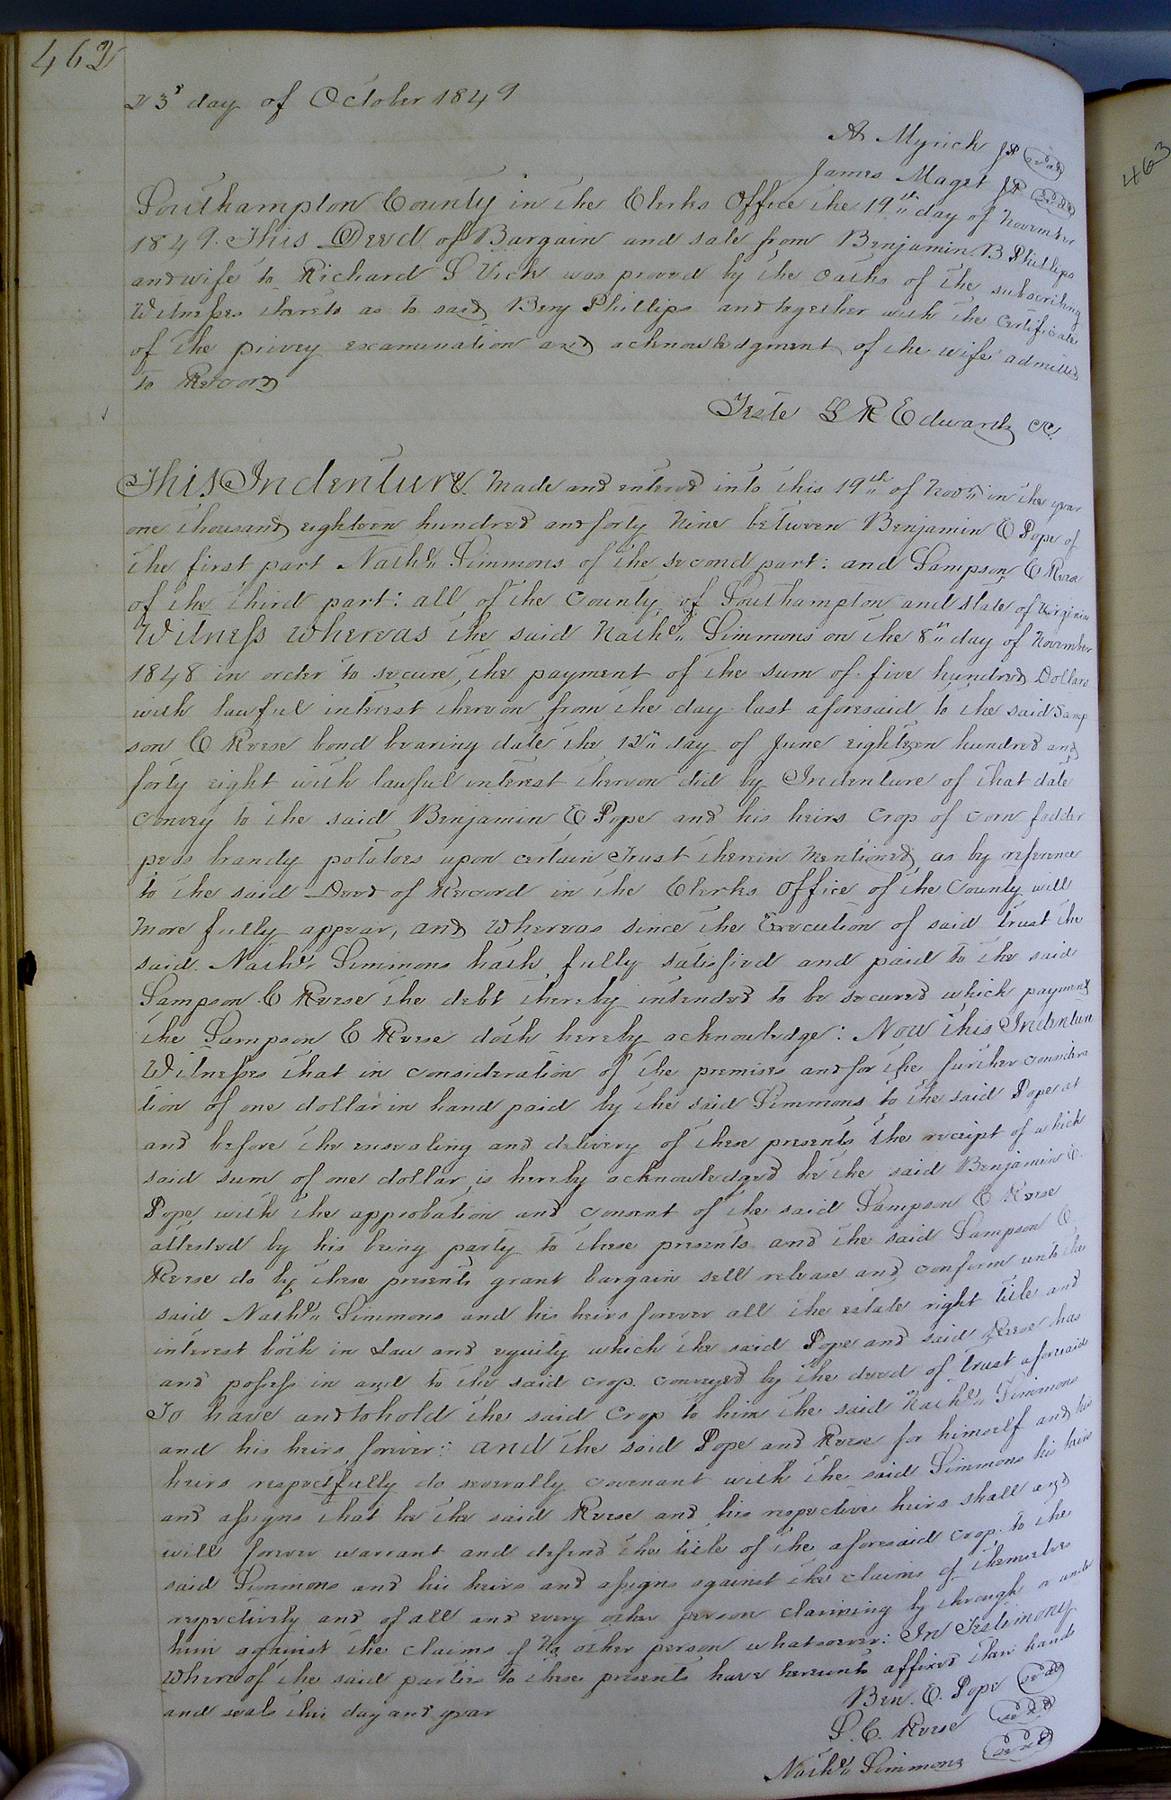 462
23d day of October 1849
A Myrick JP seal
James Maget JP seal
Southampton County in the Clerks Office the 19th day of November
1849. This Deed of Bargain and sale from Benjamin B Phillips
and wife to Richard S Vick was proved by the oaths of the subscribing
Witnesses thereto as to said Benj Phillips and together with the Certificate
of the privey examination and acknowledgment of the wife admitted
to Record
Teste L R Edwards CC.
This Indenture. Made and entered into this 19th of Novr in the year
one thousand eighteen hundred and forty Nine between Benjamin E Pope of
the first part Nathl Simmons of the second part: and Sampson C Reese
of the third part: all of the County of Southampton and State of Virginia
Witness whereas the said Nathl Simmons on the 8th day of November
1848 in order to secure the payment of the sum of five hundred Dollars
with lawful interest thereon from the day last aforesaid to the said Samp
son C Reese bond bearing date the 12th day of June eighteen hundred and
forty eight with lawful interest thereon did by Indenture of that date
convey to the said Benjamin E Pope and his heirs Crop of corn fodder
peas brandy potatoes upon certain Trust therein Mentioned as by reference
to the said Deed of Record in the Clerks Office of the County will
more fully appear, and Whereas since the Execution of said trust the
said Nathl Simmons hath fully satisfied and paid to the said
Sampson C Reese the debt thereby intended to be secured which payment
the Sampson C Reese doth hereby acknowledge: Now this Indenture
Witnesses that in consideration of the premises and for the further considera
tion of one dollar in hand paid by the said Simmons to the said Pope at
and before the ensealing and delivery of these presents the receipt of which
said sum of one dollar is hereby acknowledged he the said Benjamin E.
Pope with the approbation and consent of the said Sampson C Reese
attested by his being party to these presents and the said Sampson C
Reese do by these presents grant bargain sell release and confirm unto the
said Nathl Simmons and his heirs forever all the estate right title and
interest both in Law and equity which the said Pope and said Reese has
and possess in and to the said crop conveyed by the deed of trust aforesaid
To have and to hold the said Crop to him the said Nathl Simmons
and his heirs forever: and the said Pope and Reese for himself and his
heirs respectfully do severally covenant with the said Simmons his heirs
and assigns that he the said Reese and his respective heirs shall and
will forever warrant and defend the title of the aforesaid crop to the
said Simmons and his heirs and assigns against the claims of themselves
respectively and of all and every other person claiming by through or under
him against the claims of no other person whatsoever: In Testimony
Whereof the said parties to these presents have hereunto affixed their hands
and seals this day and year
Ben. E. Pope seal
S. C. Reese seal
Nathl Simmons seal
463